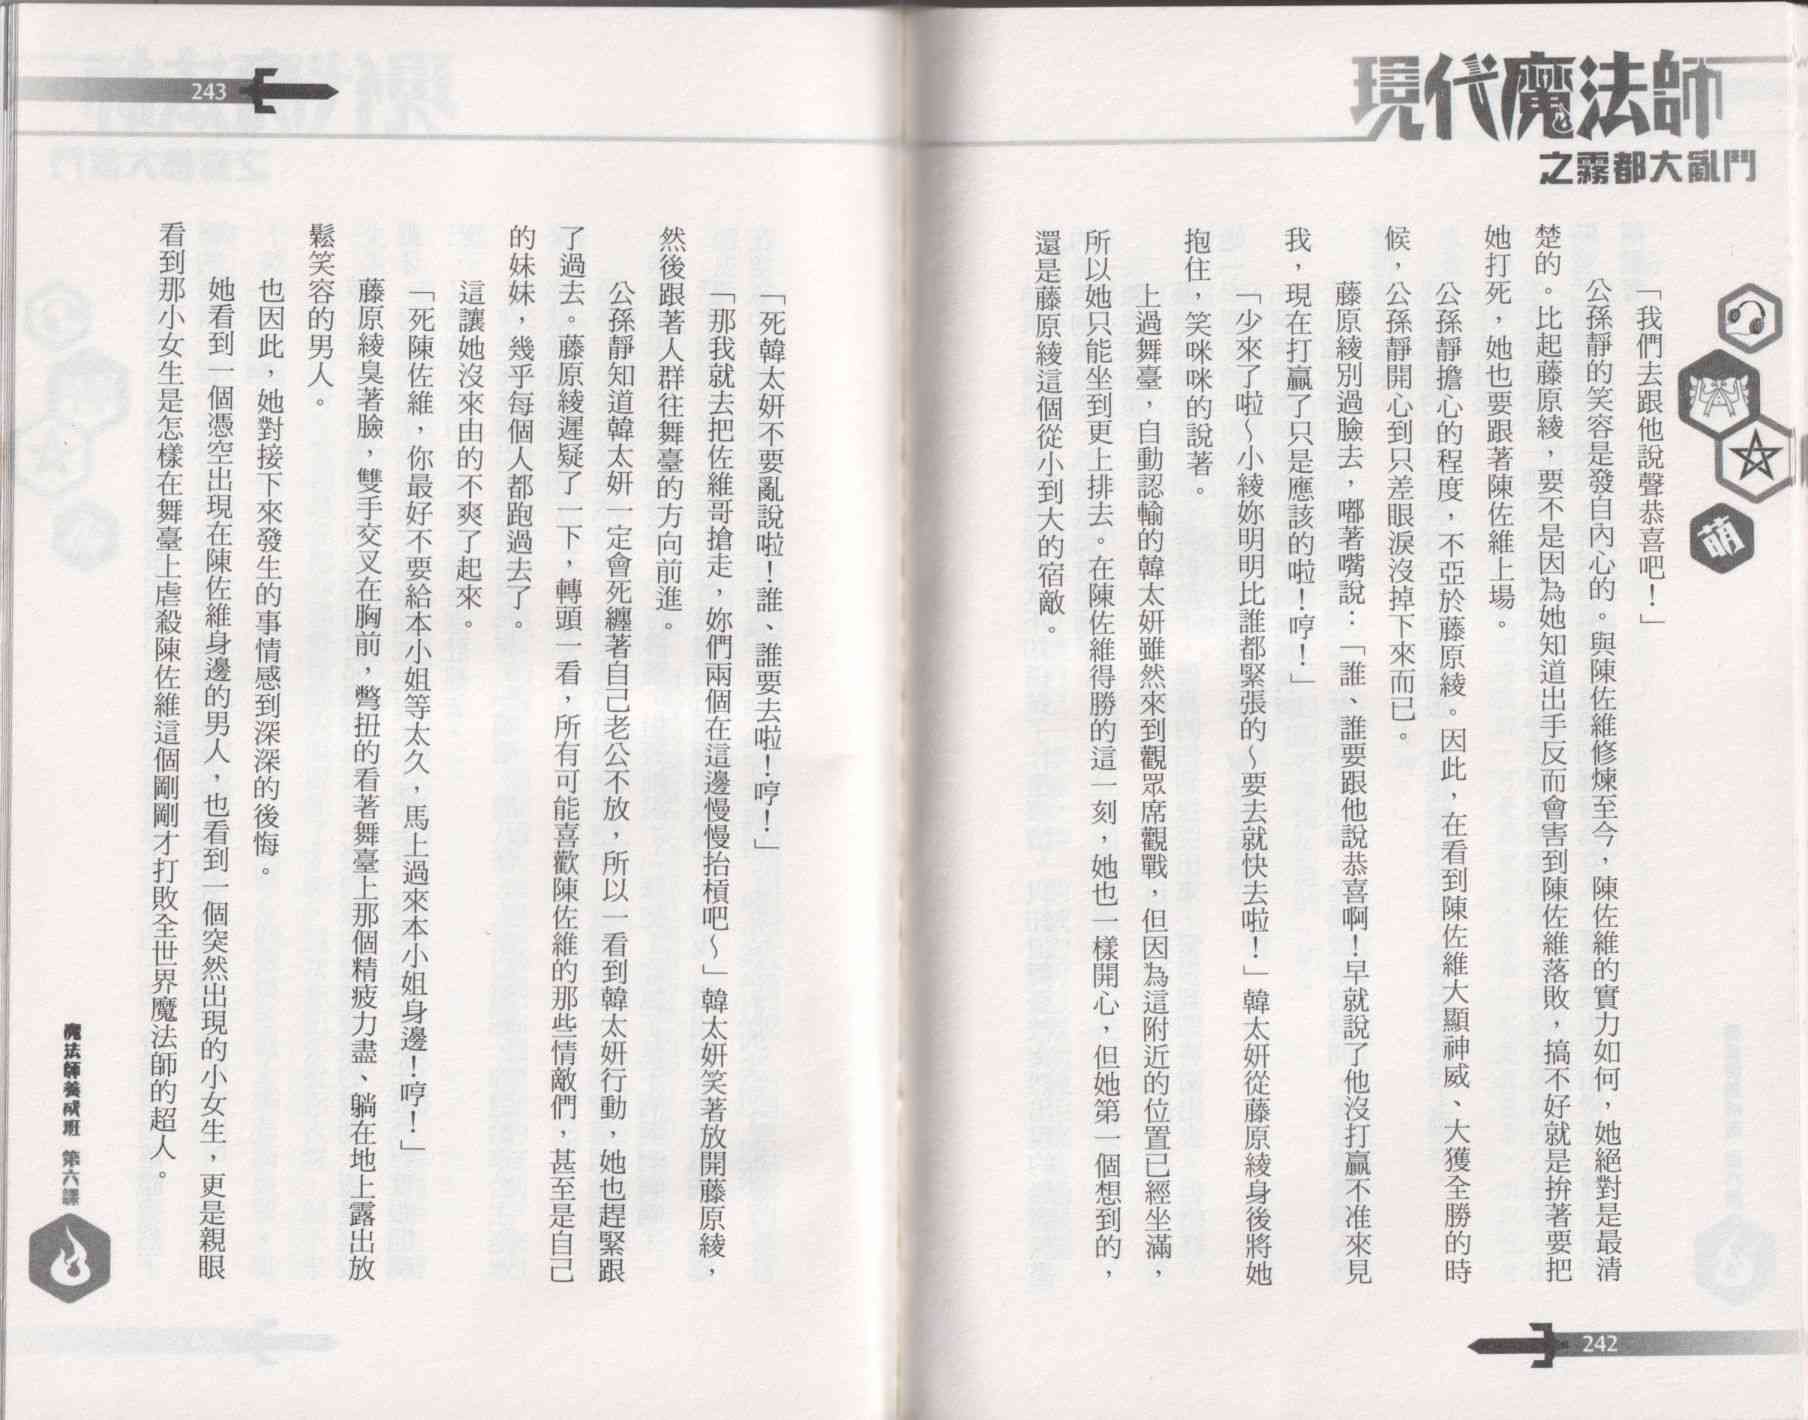 現代魔法師
之霧都大亂鬥
萌
「我們去跟他說聲恭喜吧！」
公孫靜的笑容是發自內心的。與陳佐維修煉至今，陳佐維的實力如何，她絕對是最清
楚的。比起藤原綾，要不是因為她知道出手反而會害到陳佐維落敗，搞不好就是拚著要把
她打死，她也要跟著陳佐維上場。
公孫靜擔心的程度，不亞於藤原綾。因此，在看到陳佐維大顯神威、大獲全勝的時
候，公孫靜開心到只差眼淚沒掉下來而已。
藤原綾別過臉去，嘟著嘴說：「誰、誰要跟他說恭喜啊！早就說了他沒打贏不准來見
我，現在打贏了只是應該的啦！哼！」
「少來了啦～小綾妳明明比誰都緊張的～要去就快去啦！」韓太妍從藤原綾身後將她
抱住，笑咪咪的說著。
上過舞臺，自動認輸的韓太妍雖然來到觀眾席觀戰，但因為這附近的位置已經坐滿，
所以她只能坐到更上排去。在陳佐維得勝的這一刻，她也一樣開心，但她第一個想到的，
還是藤原綾這個從小到大的宿敵。
242
243
「死韓太妍不要亂說啦！誰、誰要去啦！哼！」
「那我就去把佐維哥搶走，妳們兩個在這邊慢慢抬槓吧～」韓太妍笑著放開藤原綾，
然後跟著人群往舞臺的方向前進。
公孫靜知道韓太妍一定會死纏著自己老公不放，所以一看到韓太妍行動，她也趕緊跟
了過去。藤原綾遲疑了一下，轉頭一看，所有可能喜歡陳佐維的那些情敵們，甚至是自己
的妹妹，幾乎每個人都跑過去了。
這讓她沒來由的不爽了起來。
「死陳佐維，你最好不要給本小姐等太久，馬上過來本小姐身邊！哼！」
藤原綾臭著臉，雙手交叉在胸前，彆扭的看著舞臺上那個精疲力盡、躺在地上露出放
鬆笑容的男人。
也因此，她對接下來發生的事情感到深深的後悔。
她看到一個憑空出現在陳佐維身邊的男人，也看到一個突然出現的小女生，更是親眼
看到那小女生是怎樣在舞臺上虐殺陳佐維這個剛剛才打敗全世界魔法師的超人。
魔法師養成班 第六課